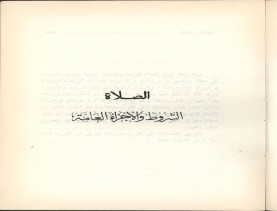 الصلاة
الشروط والأجزاء العامة